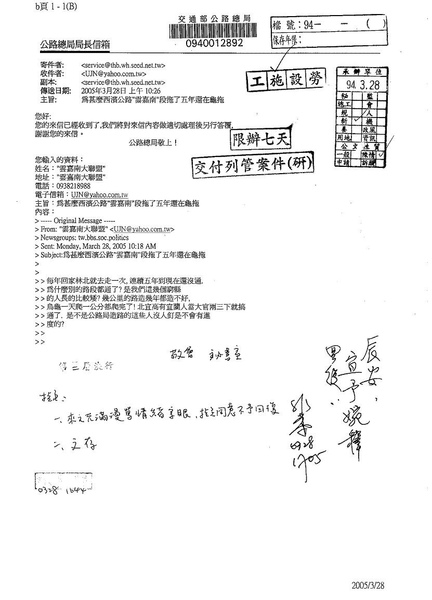 b頁 1 - 1(B)
交通部公路總局
0940012892
檔 號：94- - ( )
保存年限：
公路總局局長信箱
寄件者： <service@thb.wh.seed.net.tw>
收件者： <UJN@yahoo.com.tw>
副本： <service@thb.wh.seed.net.tw>
傳送日期： 2005年3月28日 上午 10:26
主旨： 爲甚麼西濱公路"雲嘉南"段拖了五年還在龜拖
工施設勞
承辦單位
94. 3. 28
限辦七天
交付列管案件(研)
您好:
您的來信已經收到了,我們將對來信內容做適切處理後另行答覆,
謝謝您的來信。
公路總局敬上！
您輸入的資料：
姓名："雲嘉南大聯盟"
地址："雲嘉南大聯盟"
電話：0938218988
電子信箱：UJN@yahoo.com.tw
主旨：爲甚麼西濱公路"雲嘉南"段拖了五年還在龜拖
內容：
> ----- Original Message -----
> From: "雲嘉南大聯盟" <UJN@yahoo.com.tw>
> Newsgroups: tw.bbs.soc.politics
> Sent: Monday, March 28, 2005 10:18 AM
> Subject:爲甚麼西濱公路"雲嘉南"段拖了五年還在龜拖
>
>
>> 每年回家林北就去走一次, 連續五年到現在還沒通,
>> 爲什麼別的路段都通了? 是我們這幾個窮縣
>> 的人長的比較矮? 幾公里的路造幾年都造不好,
>> 烏龜一天爬一公分都爬完了! 北宜高有宜蘭人當大官兩三下就搞
>> 通了, 是不是公路局造路的這些人沒人釘是不會有進
>> 度的?
一、來文充滿漫罵情緒字眼,
二、文存
0328
1705
0328 1644
2005/3/28